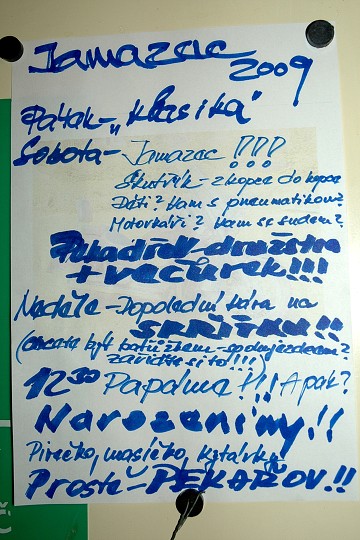 Jamazac
2009
Pátak - „klasika"
Sobota - Jamazac !!!
Skutřík - z kopce do kopce
Děti? Kam s pneumatikou?
Motorkáři? Kam se sudem?
družstva
+ večírek!!!
Neděle - Dopolední kára na
(chcete být
zařiďte si to!!!)
12 30 Papáma!!! A pak?
Narozeniny!!
Pivečko, masíčko, kytárky
Prostě - PEKAŘOV!!